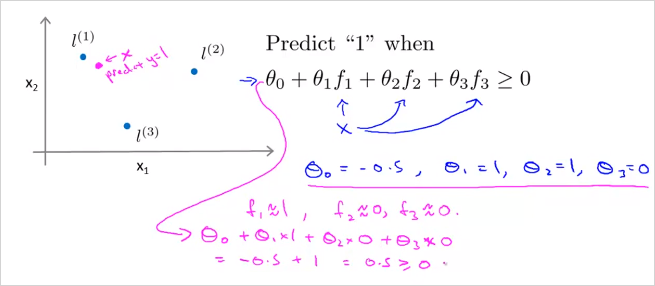 l(1)
← x
predict y=1
l(2)
l(3)
x₂
x₁
Predict “1” when
→ θ₀ + θ₁f₁ + θ₂f₂ + θ₃f₃ ≥ 0
x
θ₀ = -0.5, θ₁=1, θ₂=1, θ₃=0
f₁≈1, f₂≈0, f₃≈0.
θ₀ + θ₁×1 + θ₂×0 + θ₃×0
= -0.5 + 1 = 0.5 ≥ 0